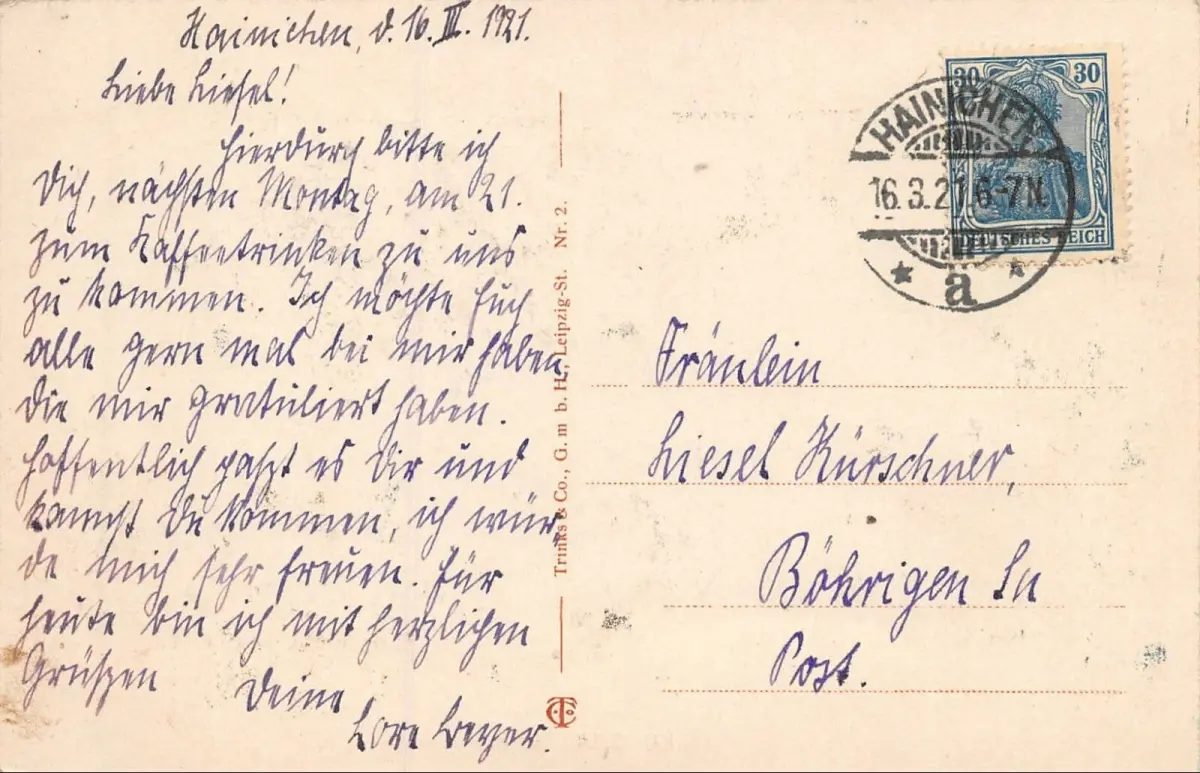 Hainichen, d. 16. III. 1921.
Liebe Liesel!
Hierdurch bitte ich
Dich, nächsten Montag, am 21.
zum Kaffeetrinken zu uns
zu kommen. Ich möchte Euch
alle gern mal bei mir haben,
die mir gratuliert haben.
Hoffentlich paßt es Dir und
kannst Du kommen, ich wür
de mich sehr freuen. Für
heute bin ich mit herzlichen
Grüßen
Deine
Lore Beyer.
Trinks & Co., G. m b. H., Leipzig-St. Nr. 2.
30 30
DEUTSCHES REICH
HAINICHEN
16.3.21.6-7N.
* a *
Fräulein
Liesel Kürschner,
Böhrigen Sa
Post.